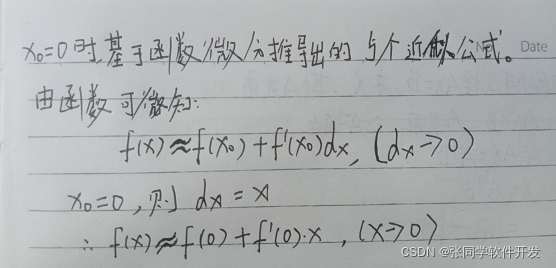 x₀=0时,基于函数微分推导出的5个近似公式。
Date
由函数可微知:
f(x)≈f(x₀)+f'(x₀)dx, (dx→0)
x₀=0, 则 dx=x
∴ f(x)≈f(0)+f'(0)·x , (x→0)
CSDN @张同学软件开发